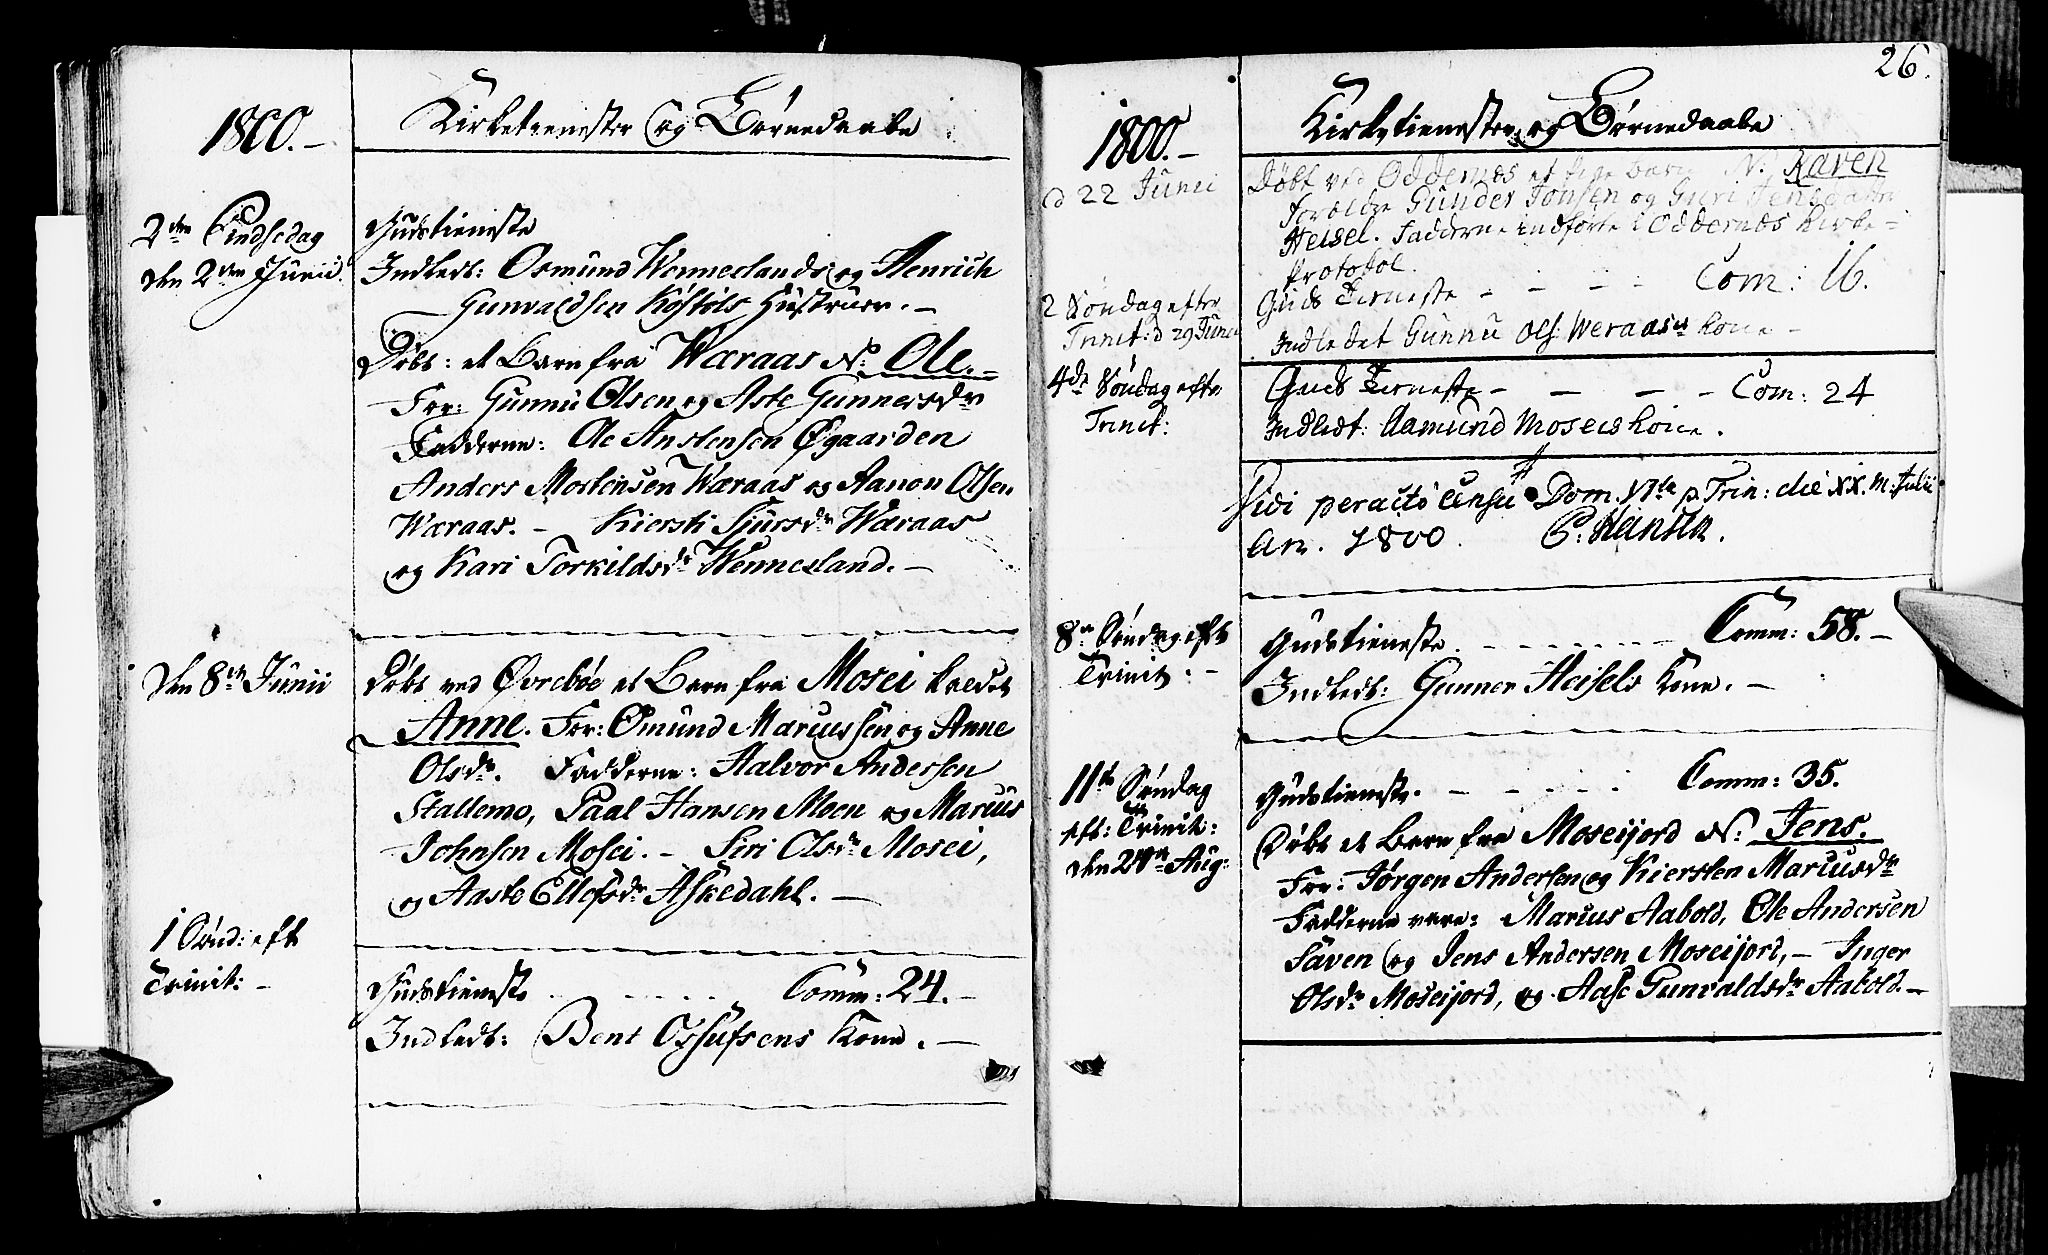 1800.-
Kirketienester og Børnedaabe
2den Pindsedag
den 2den Junii.
Gudstieneste
Indledt: Osmund Wenneslands og Henrich
Gunvaldsen Kostøls Hustruer. -
Døbt: et Barn fra Wæraas N: Ole. -
For: Gunnu Olsen og Aste Gunnersdr
Fadderne: Ole Anstensen Øgaarden
Anders Mortensen Wæraas og Aanon Olsen
Wæraas. - Kiersti Sjursdr Wæraas
og Kari Torkildsdr Wennesland. -
den 8de Junii
Døbt ved Øvrebøe et Barn fra Mosei kaldet
Anne. For: Omund Mariussen og Anne
Olsdr. Fadderne: Halvor Andersen
Stallemo, Paal Hansen Moen og Marius
Johnsen Mosei. - Siri Olsdr Mosei,
og Aaste Ellefsdr Askedahl. -
1 Sønd: eft
Trinit: -
Gudstieneste . . - . . . . Comm: 24. -
Indledt: Bent Ossufsens Kone. -
26.
1800. -
Kirketienester og Børnedaabe
d 22 Junii
Døbt ved Oddernæs et barn N: Raven
Forældre Gunder Jonsen og Guri Jensdatter
Heisel. Fadderne indførte i Oddernæs Kirke-
Protokol.
2 Søndag efter
Trinit: d 29 Junii
Guds Tieneste - - - - Com: 16.
Indledet Gunnu Ols: Weraases kone -
4de Søndag efter
Trinit:
Guds Tieneste - - - - Com: 24
Indledt: Aamund Moseis kone.
Vidi peracto censu Dom. VIta p. Trin: die XX. M: Julii
An. 1800. P: Hansen.
8de Søndag eft
Trinit: -
Gudstieneste . - - - - - - - Comm: 58. -
Indledt: Gunner Heisels Kone. -
11te Søndag
eft: Trinit:
den 24de Aug:
Gudstieneste. - - . . . . Comm: 35.
Døbt et Barn fra Moseijord N: Jens.
For: Jørgen Andersen og Kiersten Mariusdr
Fadderne vare: Marius Aabold, Ole Andersen
Faven og Jens Andersen Moseijord, - Inger
Olsdr Moseijord, og Aase Gunvaldsdr Aabold. -